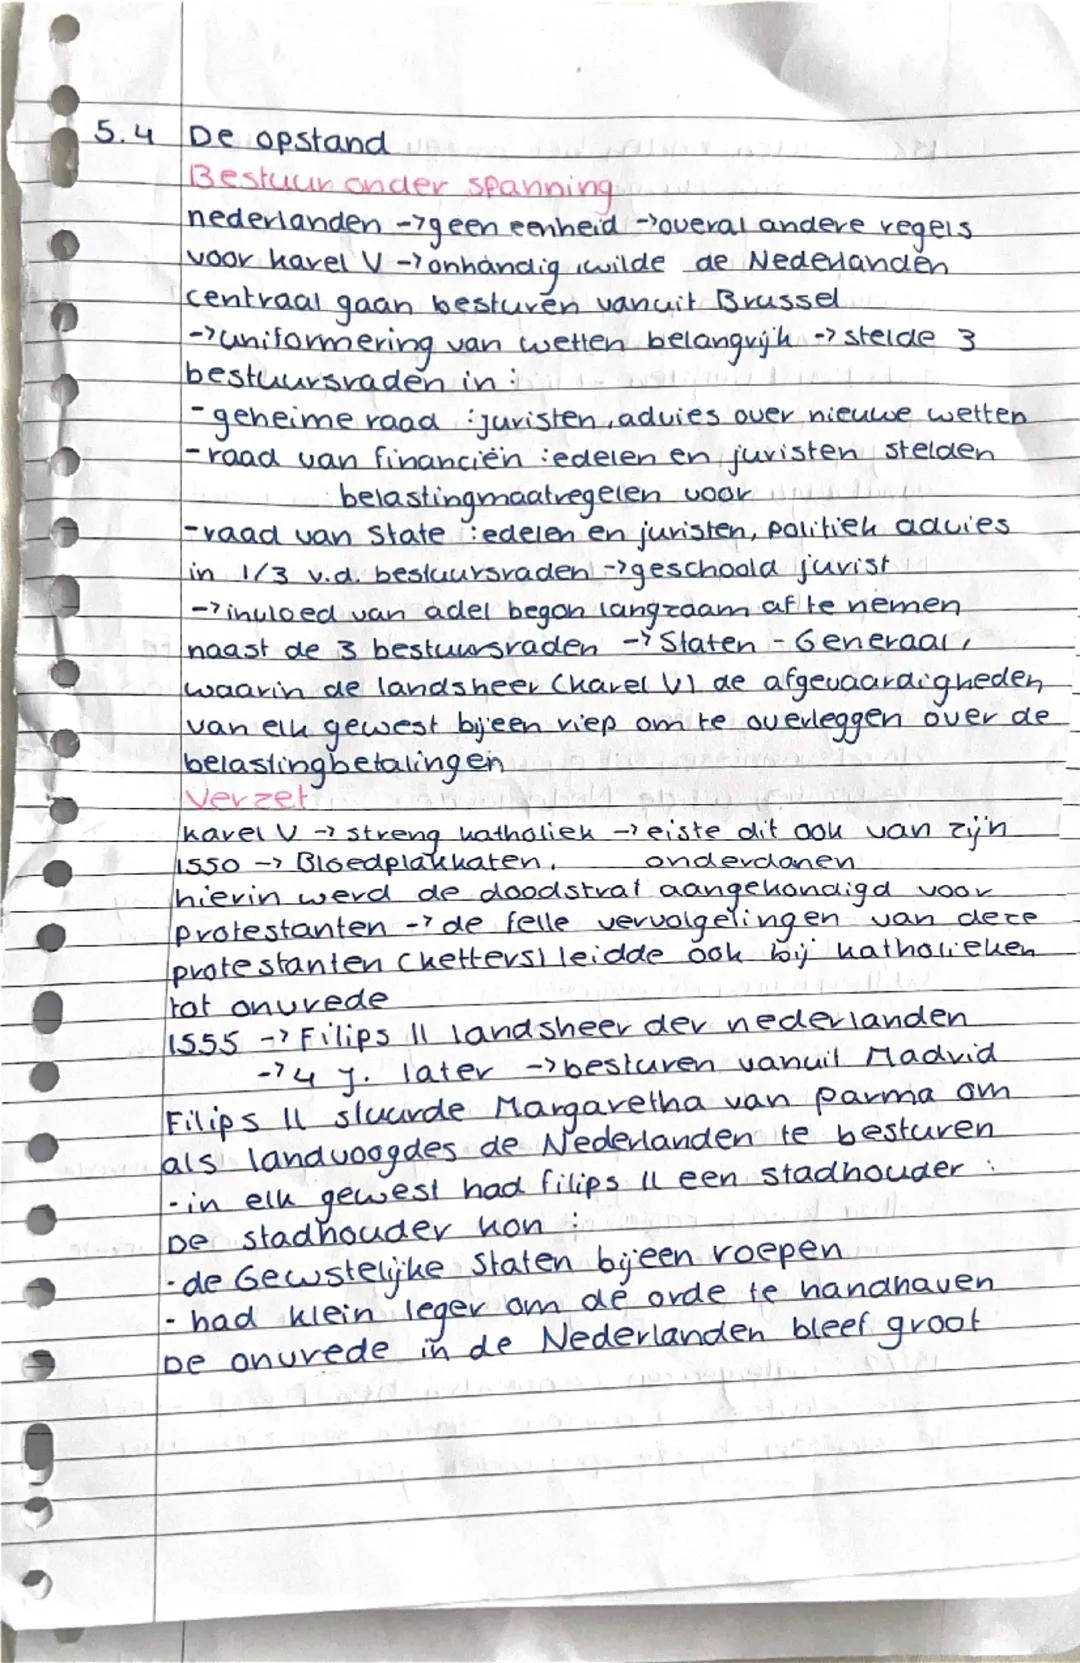 5.4 De opstand
Bestuur onder spanning
nederlanden -> geen eenheid -> overal andere regels
voor karel V -> onhandig, wilde de Nederlanden
centraal gaan besturen vanuit Brussel
-> uniformering van wetten belangrijk -> stelde 3
bestuursraden in :
- geheime raad : juristen, advies over nieuwe wetten
- raad van financiën : edelen en juristen stelden
belastingmaatregelen voor
- raad van State : edelen en juristen, politiek advies
in 1/3 v.d. bestuursraden -> geschoold jurist
-> invloed van adel begon langzaam af te nemen
naast de 3 bestuursraden -> Staten - Generaal,
waarin de landsheer (karel V) de afgevaardigheden
van elk gewest bijeen riep om te overleggen over de
belastingbetalingen
Verzet
karel V -> streng katholiek -> eiste dit ook van zijn
1550 -> Bloedplakkaten. onderdanen
hierin werd de doodstraf aangekondigd voor
protestanten -> de felle vervolgelingen van deze
protestanten (ketters) leidde ook bij katholieken
tot onvrede
1555 -> Filips II landsheer der nederlanden
-> 4 j. later -> besturen vanuit Madrid
Filips II stuurde Margaretha van parma om
als landvoogdes de Nederlanden te besturen
- in elk gewest had filips II een stadhouder :
De stadhouder kon :
- de Gewstelijke Staten bijeen roepen
- had klein leger om de orde te handhaven
De onvrede in de Nederlanden bleef groot